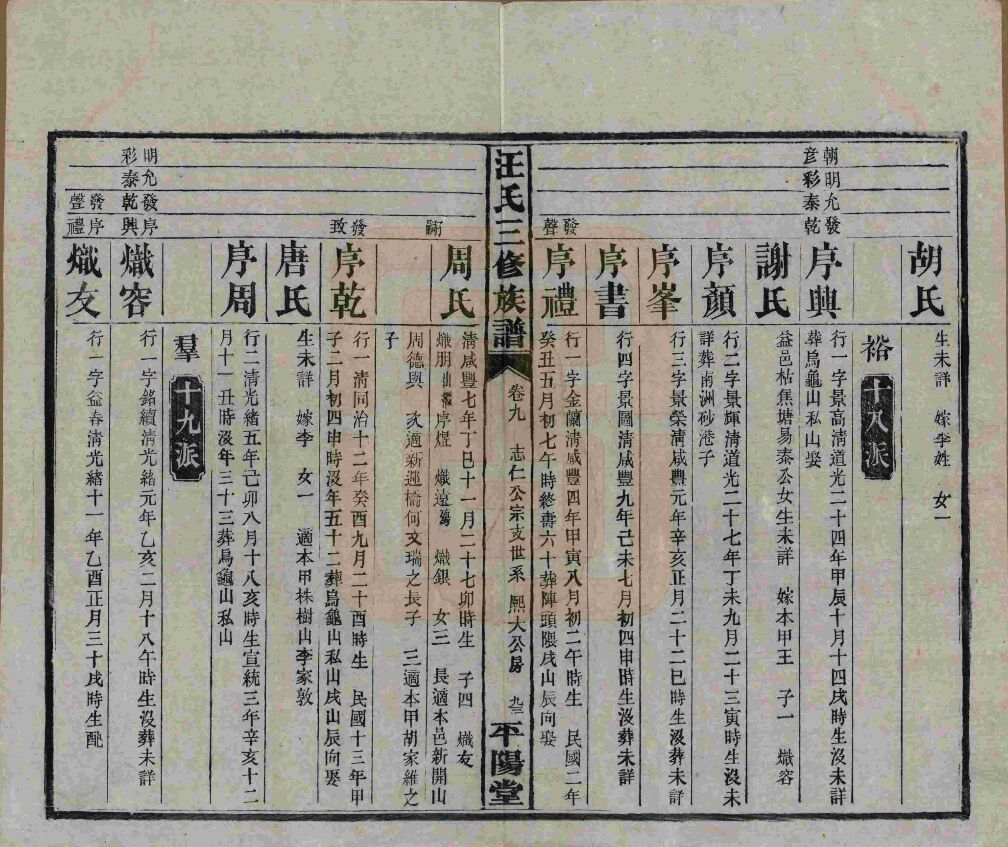 胡氏
生未詳 嫁李姓 女一
裕 十八派
朝明允發
彦彩泰乾
序興
行一字景高清道光二十四年甲辰十月十四戌時生沒未詳
葬烏龜山私山娶
謝氏
益邑枯焦塘易泰公女生未詳 嫁本甲王 子一 熾容
序顏
行二字景輝清道光二十七年丁未九月二十三寅時生沒未
詳葬南洲砂港子
序峯
行三字景榮清咸豐元年辛亥正月二十二巳時生沒葬未詳
序書
行四字景圖清咸豐九年己未七月初四申時生沒葬未詳
發聲
序禮
行一字金蘭清咸豐四年甲寅八月初二午時生 民國二年
癸丑五月初七午時終壽六十葬陣頭隈戌山辰向娶
汪氏三修族譜 卷九 志仁公宗支世系 熙大公房 九三 平陽堂
嗣
周氏
清咸豐七年丁巳十一月二十七卯時生 子四 熾友
熾朋出繼序煜 熾遠殤 熾銀 女三 長適本邑新開山
周德與 次適新運橋何文瑞之長子 三適本甲胡家維之
子
發致
序乾
行一清同治十二年癸酉九月二十酉時生 民國十三年甲
子二月初四申時沒年五十二葬烏龜山私山戌山辰向娶
唐氏
生未詳 嫁李 女一 適本甲株樹山李家敦
序周
行二清光緒五年己卯八月十八亥時生宣統三年辛亥十二
月十一丑時沒年三十三葬烏龜山私山
羣 十九派
明允發序
彩泰乾興
熾容
行一字銘續清光緒元年乙亥二月十八午時生沒葬未詳
發序
聲禮
熾友
行一字益春清光緒十一年乙酉正月三十戌時生配